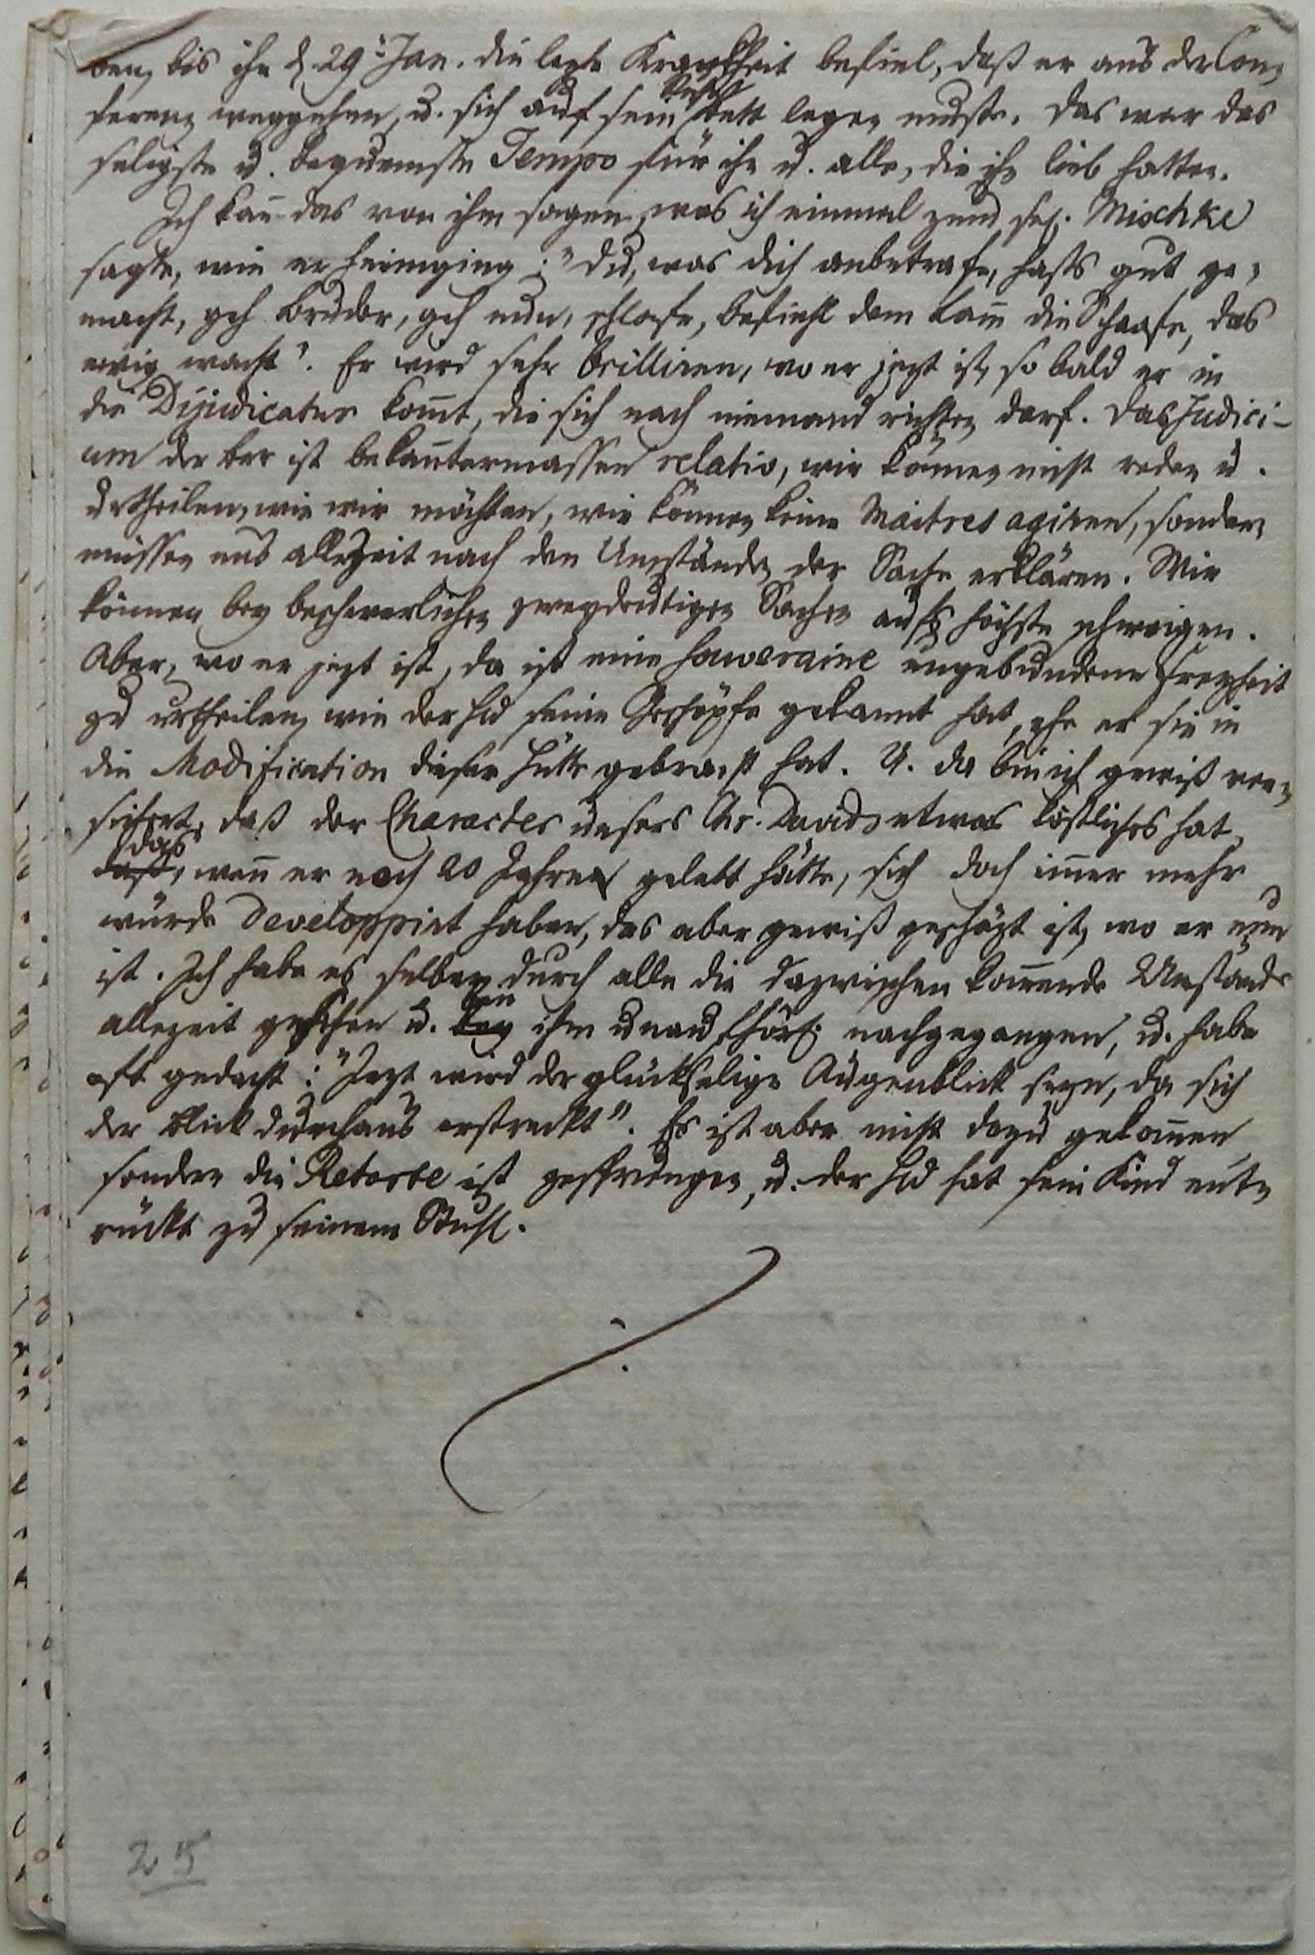 ben, bis ihn d. 29. Jan. die lezte Krankheit befiel, daß er aus der Con-
ferenz weggehen, u. sich auf sein bett legen muste. Das war das
seligste u. bequemste Tempo für ihn u. alle, die ihn lieb hatten.
Ich kan̅ das von ihm sagen, was ich einmal zum sel. Mischke
sagte, wie er heimging: "Du, was dich anbetrafe, hasts gut ge-
macht, geh bruder, geh nun, schlafe, befiehl dem Lam̅ die Schaafe, das
ewig wacht". Er wird sehr brilliren, wo er jezt ist, so bald er in
die Dijudicatur kom̅t, die sich nach niemand richten darf. Das Judici-
um der br ist bekan̅termassen relativ, wir können nicht reden u.
urtheilen, wie wir möchten, wir können keine Maitres agiren, sondern
müssen uns allezeit nach den Umständen der Sache erklären. Wir
können bey beschwerlichen zweydeutigen Sachen aufs höchste schweigen.
Aber, wo er jezt ist, da ist eine souveraine ungebundene Freyheit
zu urtheilen, wie der Hld seine Geschöpfe gekannt hat, ehe er sie in
die Modification dieser Hütte gebracht hat. U. da bin ich gewiß ver-
sichert, daß der Character unsers Chr. Davids etwas köstliches hat,
daß das, wen̅ er noch 20 Jahre gelebt hätte, sich doch im̅er mehr
würde developpirt haben, das aber gewiß geschäzt ist, wo er nun
ist. Ich habe es selber durch alle die dazwischen kom̅ende Umstände
allezeit gesehen u. bin ihm unaufhörl. nachgegangen, u. habe
oft gedacht: "Jezt wird der glückselige Augenblick seyn, da sich
der blick durchaus erstreckt". Es ist aber nicht dazu gekom̅en,
sondern die Retorte ist gesprungen, u. der Hld hat sein Kind ent-
rückt zu seinem Stuhl.
25